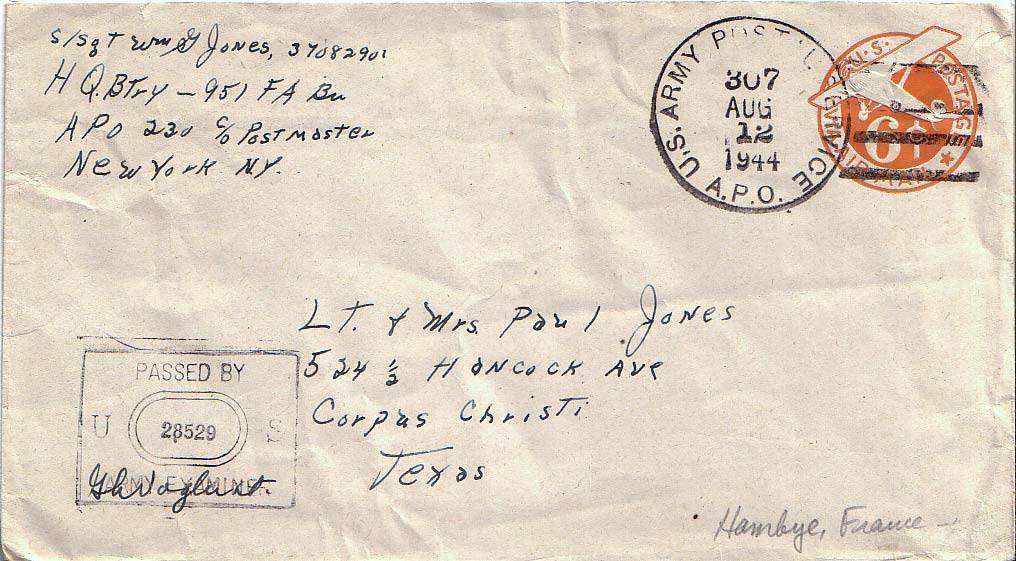 S/Sgt Wm G Jones, 37082901
H Q.BTry - 951 FA Bn
APO 230 c/o Postmaster
New York N.Y.
U.S. ARMY POSTAL SERVICE
A.P.O.
307
AUG
12
1944
U.S. POSTAGE
6¢
AIR MAIL
LT. & Mrs. Paul Jones
524 ½ Hancock Ave
Corpus Christi
Texas
PASSED BY
U 28529 S
ARMY EXAMINER
Hambye, France -